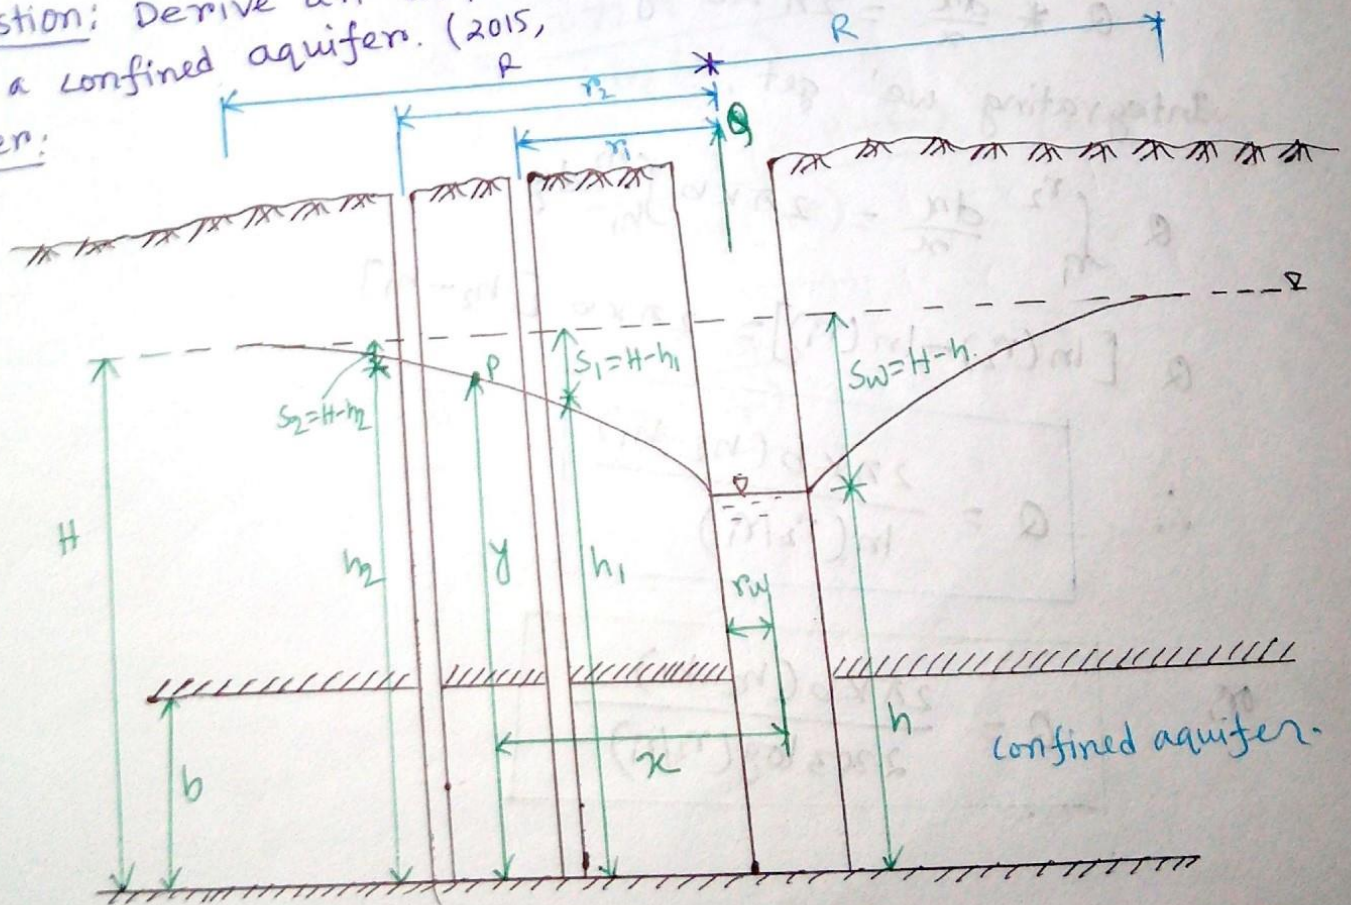 stion: Derive an
a confined aquifer. (2015,
er:
R
R
r2
r1
Q
S1=H-h1
Sw=H-h.
P
S2=H-h2
H
h2
y
h1
rw
b
x
h
confined aquifer.